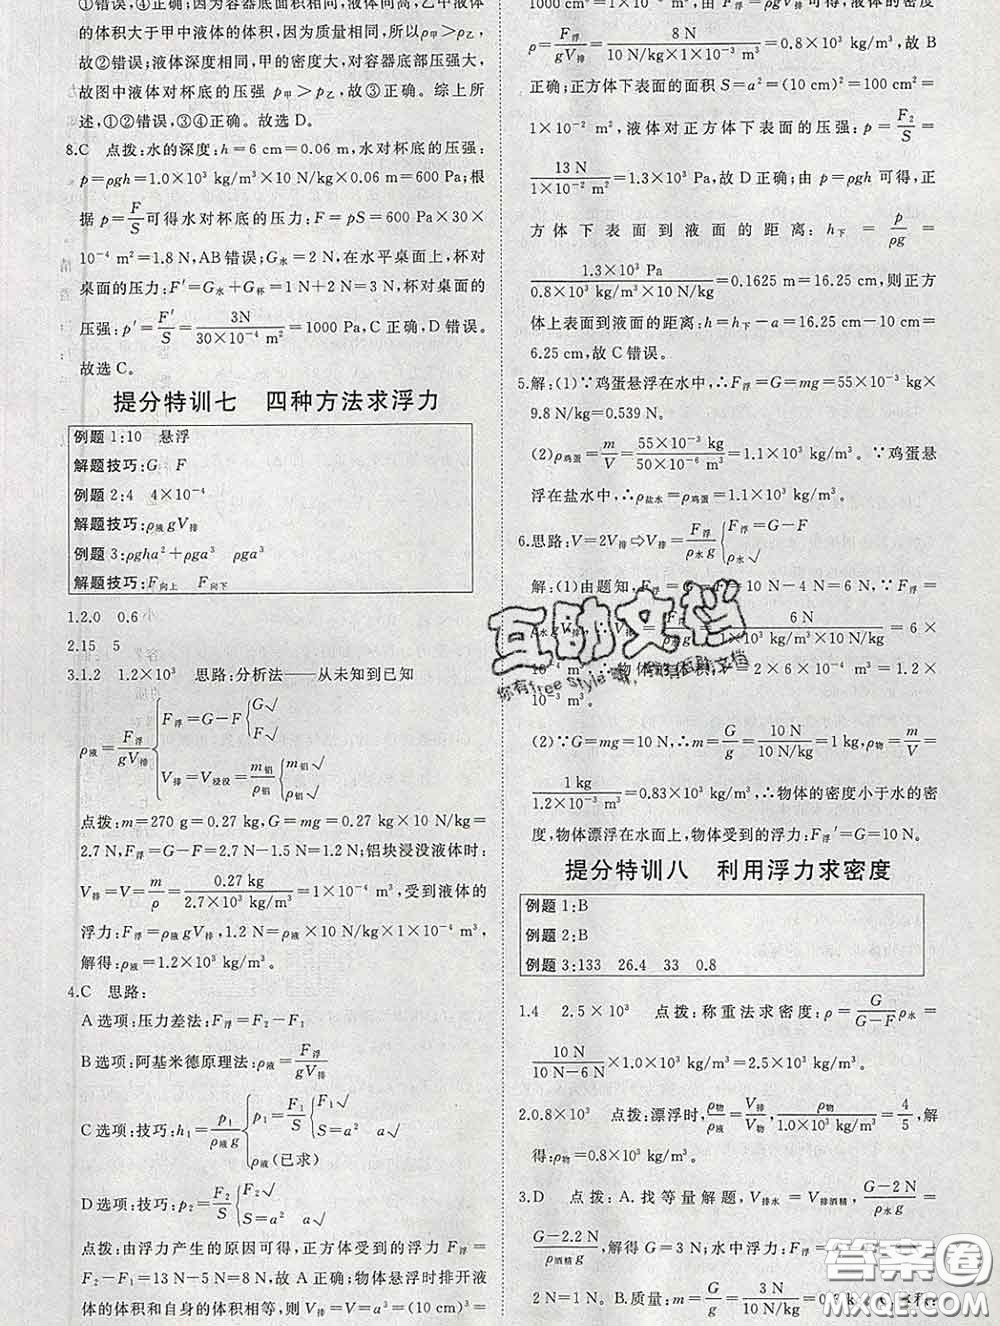 ①错误,④正确;因为容器底面积相同,液体高,乙甲液体
的体积大于甲中液体的体积,因为质量相同,所以ρ甲>ρ乙,
故②错误;液体深度相同,甲的密度大,对容器底部压强大,
故图中液体对杯底的压强 p甲>p乙,故③正确。综上所
述,①②错误,③④正确。故选D。
8.C 点拨:水的深度:h=6 cm=0.06 m,水对杯底的压强:
p=ρgh=1.0×10³ kg/m³×10 N/kg×0.06 m=600 Pa;根
据 p=F/S可得水对杯底的压力:F=pS=600 Pa×30×
10⁻⁴ m²=1.8 N,AB错误;G水=2 N,在水平桌面上,杯对
桌面的压力:F′=G水+G杯=1 N+2 N=3 N,杯对桌面的
压强:p′=F′/S=3N/(30×10⁻⁴ m²)=1000 Pa,C正确,D错误。
故选C。
提分特训七 四种方法求浮力
例题1:10 悬浮
解题技巧:G F
例题2:4 4×10⁻⁴
解题技巧:ρ液gV排
例题3:ρgha²+ρga³ ρga³
解题技巧:F向上 F向下
1.2.0 0.6
2.15 5
3.1.2 1.2×10³ 思路:分析法——从未知到已知
ρ液=F浮/(gV排){F浮=G-F{G√ F√ V排=V浸没=m铝/ρ铝{m铝√ ρ铝√
点拨:m=270 g=0.27 kg,G=mg=0.27 kg×10 N/kg=
2.7 N,F浮=G-F=2.7 N-1.5 N=1.2 N;铝块浸没液体时:
V排=V=m/ρ=0.27 kg/(2.7×10³ kg/m³)=1×10⁻⁴ m³,受到液体的
浮力:F浮=ρ液gV排,1.2 N=ρ液×10 N/kg×1×10⁻⁴ m³,
解得:ρ液=1.2×10³ kg/m³。
4.C 思路:
A选项:压力差法:F浮=F₂-F₁
B选项:阿基米德原理法:ρ液=F浮/(gV排)
C选项:技巧:h₁=p₁/(ρ液g){p₁=F₁/S{F₁√ S=a² a√ ρ液(已求)
D选项:技巧:p₂=F₂/S{F₂√ S=a² a√
点拨:由浮力产生的原因可得,正方体受到的浮力 F浮=
F₂-F₁=13 N-5 N=8 N,故A正确;物体悬浮时排开液
体的体积和自身的体积相等,则 V排=V=a³=(10 cm)³=
1000 cm³=1×10⁻³ m³,由 F浮=ρgV排可得,液体的密度
ρ=F浮/(gV排)=8 N/(10 N/kg×1×10⁻³ m³)=0.8×10³ kg/m³,故B
正确;正方体下表面的面积 S=a²=(10 cm)²=100 cm²=
1×10⁻² m²,液体对正方体下表面的压强:p=F₂/S=
13 N/(1×10⁻² m²)=1.3×10³ Pa,故D正确;由 p=ρgh可得,正
方体下表面到液面的距离:h下=p/(ρg)=
1.3×10³ Pa/(0.8×10³ kg/m³×10 N/kg)=0.1625 m=16.25 cm,则正方
体上表面到液面的距离:h=h下-a=16.25 cm-10 cm=
6.25 cm,故C错误。
5.解:(1)∵鸡蛋悬浮在水中,∴F浮=G=mg=55×10⁻³ kg×
9.8 N/kg=0.539 N。
(2)ρ鸡蛋=m/V=55×10⁻³ kg/(50×10⁻⁶ m³)=1.1×10³ kg/m³。∵鸡蛋悬
浮在盐水中,∴ρ盐水=ρ鸡蛋=1.1×10³ kg/m³。
6.思路:V=2V排⇨V排=F浮/(ρ水g){F浮=G-F ρ水√
解:(1)由题知,F浮=G-F=10 N-4 N=6 N,∵F浮=
ρ水gV排,∴V排=F浮/(ρ水g)=6 N/(1.0×10³ kg/m³×10 N/kg)=6×
10⁻⁴ m³;∴物体的体积V=2V排=2×6×10⁻⁴ m³=1.2×
10⁻³ m³。
(2)∵G=mg=10 N,∴m=G/g=10 N/(10 N/kg)=1 kg,ρ物=m/V=
1 kg/(1.2×10⁻³ m³)=0.83×10³ kg/m³,∴物体的密度小于水的密
度,物体漂浮在水面上,物体受到的浮力:F浮′=G=10 N。
提分特训八 利用浮力求密度
例题1:B
例题2:B
例题3:133 26.4 33 0.8
1.4 2.5×10³ 点拨:称重法求密度:ρ=G/(G-F)ρ水=
10 N/(10 N-6 N)×1.0×10³ kg/m³=2.5×10³ kg/m³。
2.0.8×10³ 点拨:漂浮时,ρ物/ρ液=V排/V物,ρ物/(1.0×10³ kg/m³)=4/5,解
得:ρ物=0.8×10³ kg/m³。
3.D 点拨:A.找等量解题,V排水=V排酒精,(G-2 N)/(ρ水g)=
(G-2.2 N)/(ρ酒精g),解得G=3 N;水中浮力:F浮=G-F=3 N-
2 N=1 N。B.质量:m=G/g=3 N/(10 N/kg)=0.3 kg,体积:
互助文档
你有free style嘛,你有互助文档
答案圈
MXQE.COM